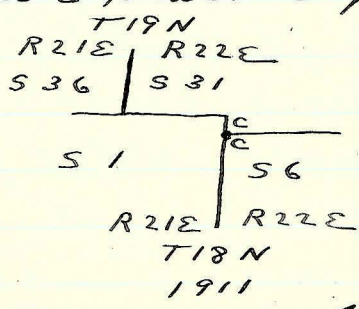 T19N
R21E R22E
S 36 S 31
C
C
S 1 S 6
R21E R22E
T18N
1911